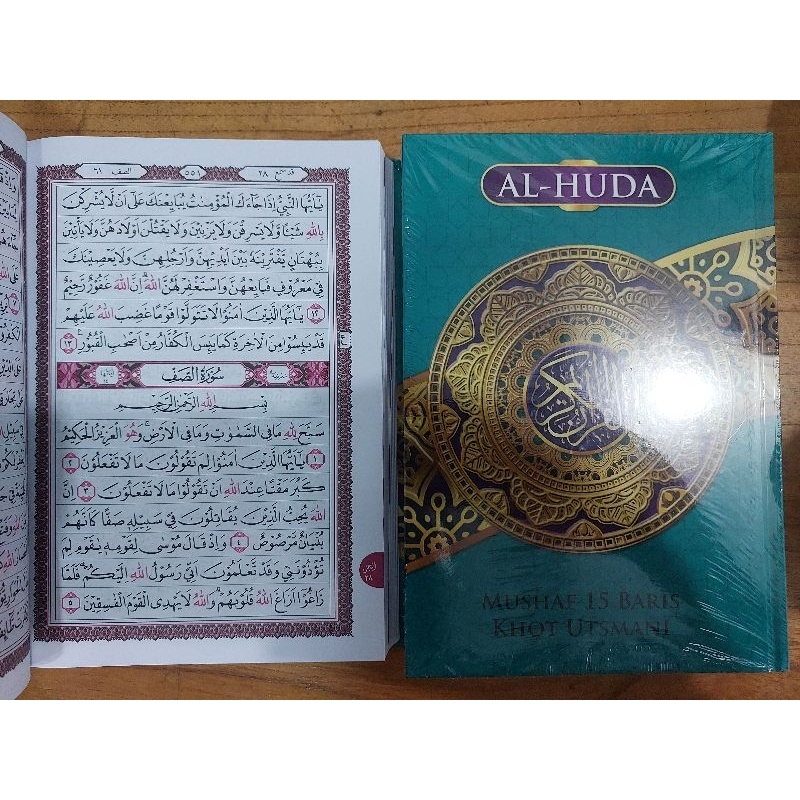 قد سمع ٢٨
٥٥١
الصف ٦١
يٰٓاَيُّهَا النَّبِيُّ اِذَا جَاۤءَكَ الْمُؤْمِنٰتُ يُبَايِعْنَكَ عَلٰٓى اَنْ لَّا يُشْرِكْنَ
بِاللّٰهِ شَيْـًٔا وَّلَا يَسْرِقْنَ وَلَا يَزْنِيْنَ وَلَا يَقْتُلْنَ اَوْلَادَهُنَّ وَلَا يَأْتِيْنَ
بِبُهْتَانٍ يَّفْتَرِيْنَهٗ بَيْنَ اَيْدِيْهِنَّ وَاَرْجُلِهِنَّ وَلَا يَعْصِيْنَكَ
فِيْ مَعْرُوْفٍ فَبَايِعْهُنَّ وَاسْتَغْفِرْ لَهُنَّ اللّٰهَ اِنَّ اللّٰهَ غَفُوْرٌ رَّحِيْمٌ
١٢ يٰٓاَيُّهَا الَّذِيْنَ اٰمَنُوْا لَا تَتَوَلَّوْا قَوْمًا غَضِبَ اللّٰهُ عَلَيْهِمْ
قَدْ يَىِٕسُوْا مِنَ الْاٰخِرَةِ كَمَا يَىِٕسَ الْكُفَّارُ مِنْ اَصْحٰبِ الْقُبُوْرِ ١٣
سُوْرَةُ الصَّفِّ
بِسْمِ اللّٰهِ الرَّحْمٰنِ الرَّحِيْمِ
سَبَّحَ لِلّٰهِ مَا فِى السَّمٰوٰتِ وَمَا فِى الْاَرْضِۚ وَهُوَ الْعَزِيْزُ الْحَكِيْمُ
١ يٰٓاَيُّهَا الَّذِيْنَ اٰمَنُوْا لِمَ تَقُوْلُوْنَ مَا لَا تَفْعَلُوْنَ ٢
كَبُرَ مَقْتًا عِنْدَ اللّٰهِ اَنْ تَقُوْلُوْا مَا لَا تَفْعَلُوْنَ ٣ اِنَّ
اللّٰهَ يُحِبُّ الَّذِيْنَ يُقَاتِلُوْنَ فِيْ سَبِيْلِهٖ صَفًّا كَاَنَّهُمْ
بُنْيَانٌ مَّرْصُوْصٌ ٤ وَاِذْ قَالَ مُوْسٰى لِقَوْمِهٖ يٰقَوْمِ لِمَ
تُؤْذُوْنَنِيْ وَقَدْ تَّعْلَمُوْنَ اَنِّيْ رَسُوْلُ اللّٰهِ اِلَيْكُمْۗ فَلَمَّا
زَاغُوْٓا اَزَاغَ اللّٰهُ قُلُوْبَهُمْۗ وَاللّٰهُ لَا يَهْدِى الْقَوْمَ الْفٰسِقِيْنَ ٥
٢٨
AL-HUDA
MUSHAF 15 BARIS
KHOT UTSMANI